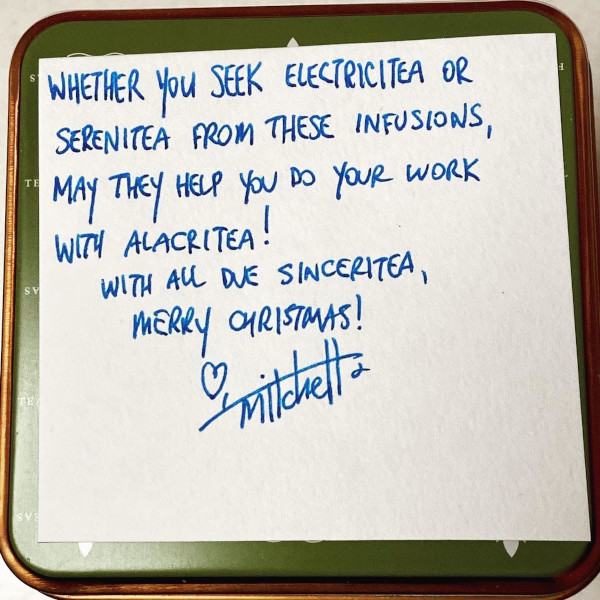 WHETHER YOU SEEK ELECTRICITEA OR
SERENITEA FROM THESE INFUSIONS,
MAY THEY HELP YOU DO YOUR WORK
WITH ALACRITEA!
WITH ALL DUE SINCERITEA,
MERRY CHRISTMAS!
♡, Mitchell